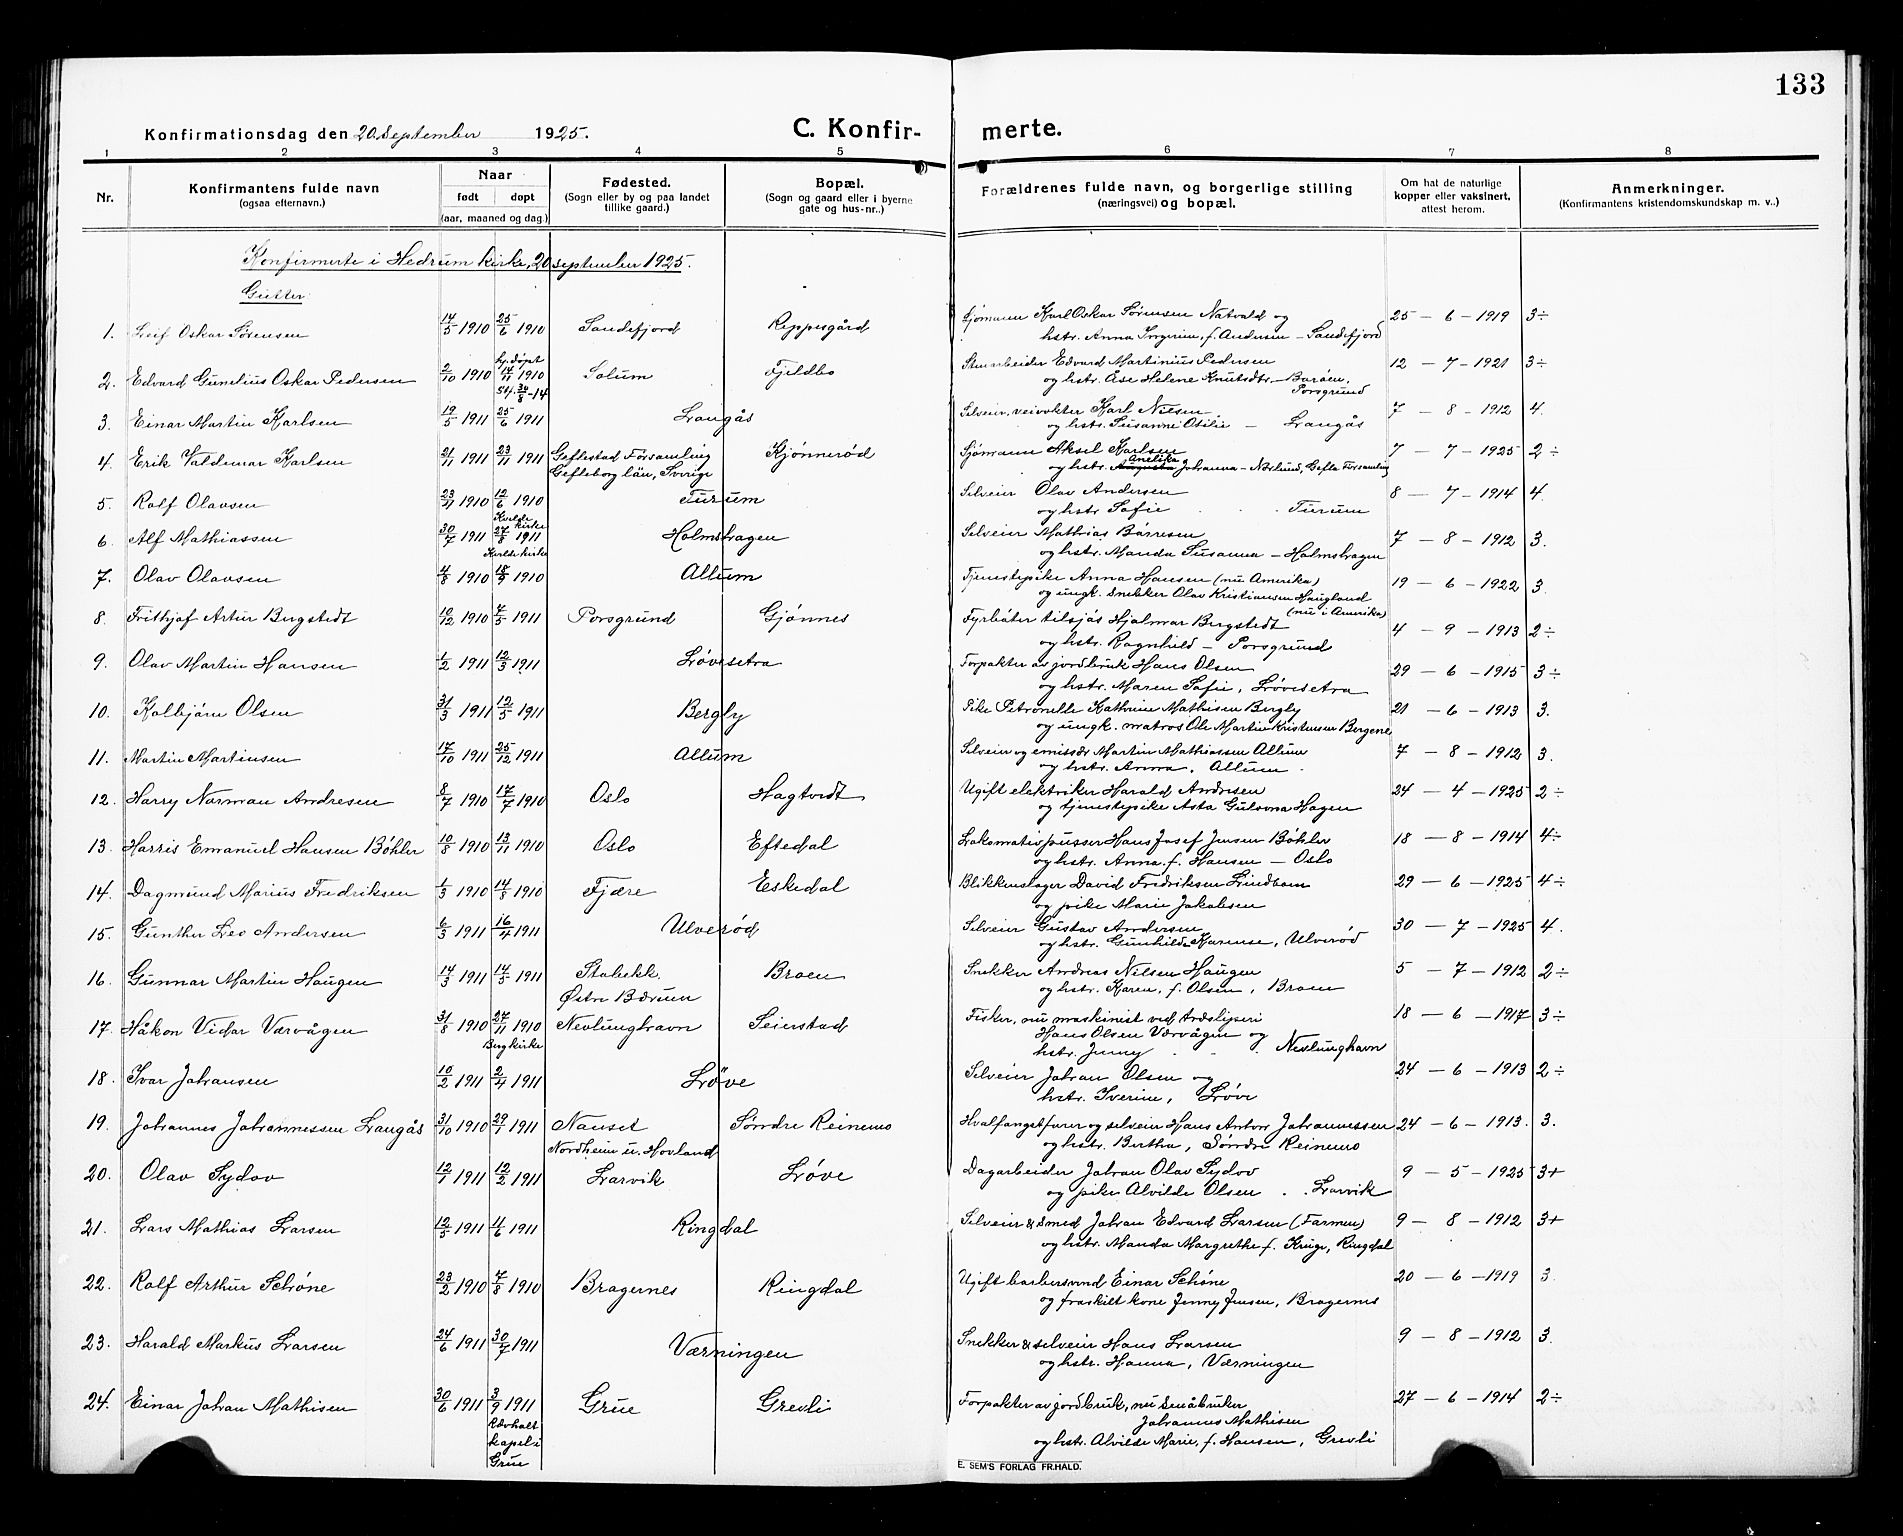 133
Konfirmationsdag den 20. september 1925.
C. Konfir- merte.
1 2 3 4 5 6 7 8
Nr.
Konfirmantens fulde navn
(ogsaa efternavn.)
Naar
født døpt
(aar, maaned og dag.)
Fødested.
(Sogn eller by og paa landet
tillike gaard.)
Bopæl.
(Sogn og gaard eller i byerne
gate og hus-nr..)
Forældrenes fulde navn, og borgerlige stilling
(næringsvei) og bopæl.
Om hat de naturlige
kopper eller vaksinert,
attest herom.
Anmerkninger.
(Konfirmantens kristendomskundskap m. v..)
Konfirmerte i Hedrum kirke, 20 september 1925.
Gutter:
1. Leif Oskar Sørensen 14/5 1910 25/6 1910 Sandefjord Rippesgård Sjømann Karl Oskar Sørensen Natvald og 25 - 6 - 1919 3÷
hstr. Anna Irgerine, f. Andersen - Sandefjord
2. Edvard Gunelius Oskar Pedersen 2/10 1910 hj. døpt 14/11 1910 Solum Fjeldbo Stenarbeider Edvard Martinius Pedersen 12 - 7 - 1921 3÷
stf. 30/8 - 14 og hstr. Åse Helene Knutsdtr. - Barøen,
Porsgrund
3. Einar Martin Karlsen 19/5 1911 25/6 1911 Langås Selveier, veivokter Karl Nilsen 7 - 8 - 1912 4.
og hstr. Susanne Otilie - Langås
4. Erik Valdemar Karlsen 21/1 1911 23/11 1911 Geflestad Församling Kjønnerød Sjømann Aksel Karlsen 7 - 7 - 1925 2÷
Gefleborg län, Sverige og hstr. Augusta Anelika Johanna - Norlund, Gefle Församling
5. Rolf Olavsen 23/4 1910 12/6 1910 Furum Selveier Olav Andersen 8 - 7 - 1914 4.
Kvelde kirke og hstr. Sofie Furum
6. Alf Mathiassen 30/7 1911 27/8 1911 Holmshagen Selveier Mathias Børresen 7 - 8 - 1912 3.
Kvelde kirke og hstr. Manda Susanna - Holmshagen
7. Olav Olavsen 4/8 1910 18/9 1910 Allum Tjenestepike Anna Hansen (nu Amerika) 19 - 6 - 1922 3.
og ungk. snekker Olav Kristiansen Haugland
(nu i Amerika)
8. Frithjof Artur Bergstedt 10/12 1910 7/5 1911 Porsgrund Gjønnes Fyrbøter tilsjøs Hjalmar Bergstedt 4 - 9 - 1913 2÷
og hstr. Ragnhild - Porsgrund
9. Olav Martin Hansen 1/2 1911 12/3 1911 Løvesetra Forpakter av jordbruk Hans Olsen 29 - 6 - 1915 3÷
og hstr. Maren Sofie, Løvesetra
10. Kolbjørn Olsen 31/3 1911 12/5 1911 Bergly Pike Petronelle Kathrine Mathisen Bergly 21 - 6 - 1913 3.
og ungk. matros Ole Martin Kristensen Bergene
11. Martin Martinsen 17/10 1911 25/12 1911 Allum Selveier og emissær Martin Mathiassen Allum 7 - 8 - 1912 3.
og hstr. Anna, Allum.
12. Harry Norman Andresen 8/7 1910 17/7 1910 Oslo Hagtvedt Ugift elektriker Harald Andresen 24 - 4 - 1925 2÷
og tjenestepike Asta Gulsona Hagen
13. Harris Emanuel Hansen Bøhler 10/8 1910 13/11 1910 Oslo Eftedal Lokomotivpusser Hans Josef Jensen Bøhler 18 - 8 - 1914 4÷
og hstr. Anna f. Hansen - Oslo
14. Dagmund Marius Fredriksen 1/3 1910 14/8 1910 Fjære Eskedal Blikkenslager David Fredriksen Lindbom 29 - 6 - 1925 4÷
og pike Marie Jakobsen
15. Gunther Leo Andersen 6/3 1911 16/4 1911 Ulverød Selveier Gustav Andersen 30 - 7 - 1925 4.
og hstr. Gunhilde Karense, Ulverød
16. Gunnar Martin Haugen 14/3 1911 14/5 1911 Stabekk Broen Snekker Andreas Nilsen Haugen 5 - 7 - 1912 2÷
Østre Bærum og hstr. Karen, f. Olsen, Broen
17. Håkon Vidar Værvågen 31/8 1910 27/11 1910 Nevlunghavn Seierstad Fisker, nu maskinist ved Aræsliperi 18 - 6 - 1917 3÷
Berg kirke Hans Olsen Værvågen og
hstr. Jenny Nevlunghavn
18. Ivar Johansen 10/2 1911 2/4 1911 Løve Selveier Johan Olsen og 24 - 6 - 1913 2÷
hstr. Iverine, Løve
19. Johannes Johannessen Langås 31/10 1910 29/1 1911 Nanset Søndre Reinemo Hvalfangstfører og selveier Hans Anton Johannessen 24 - 6 - 1913. 3.
Nordheim u. Hovland og hstr. Bertha, Søndre Reinemo
20. Olav Sydov 12/1 1911 12/2 1911 Larvik Løve Dagarbeider Johan Olav Sydov 9 - 5 - 1925 3+
og pike Alvilde Olsen Larvik
21. Lars Mathias Larsen 12/5 1911 4/6 1911 Ringdal Selveier & smed Johan Edvard Larsen (Farmen) 9 - 8 - 1912 3+
og hstr. Manda Margrethe f. Kruge, Ringdal
22. Rolf Arthur Schöne 23/2 1910 7/8 1910 Bragernes Ringdal Ugift barbersvend Einar Schöne 20 - 6 - 1919 3.
og fraskilt kone Jenny Jensen, Bragernes
23. Harald Markus Larsen 24/6 1911 30/7 1911 Værningen Snekker & selveier Hans Larsen 9 - 8 - 1912 3.
og hstr. Hanna, Værningen
24. Einar Johan Mathisen 30/6 1911 3/9 1911 Grue Grevli Forpakter av jordbruk, nu småbruker 27 - 6 - 1914 2÷
Rævholt Johannes Mathisen
kapel i og hstr. Alvilde Marie, f. Hansen, Grevli
Grue
E. SEM'S FORLAG FR.HALD.